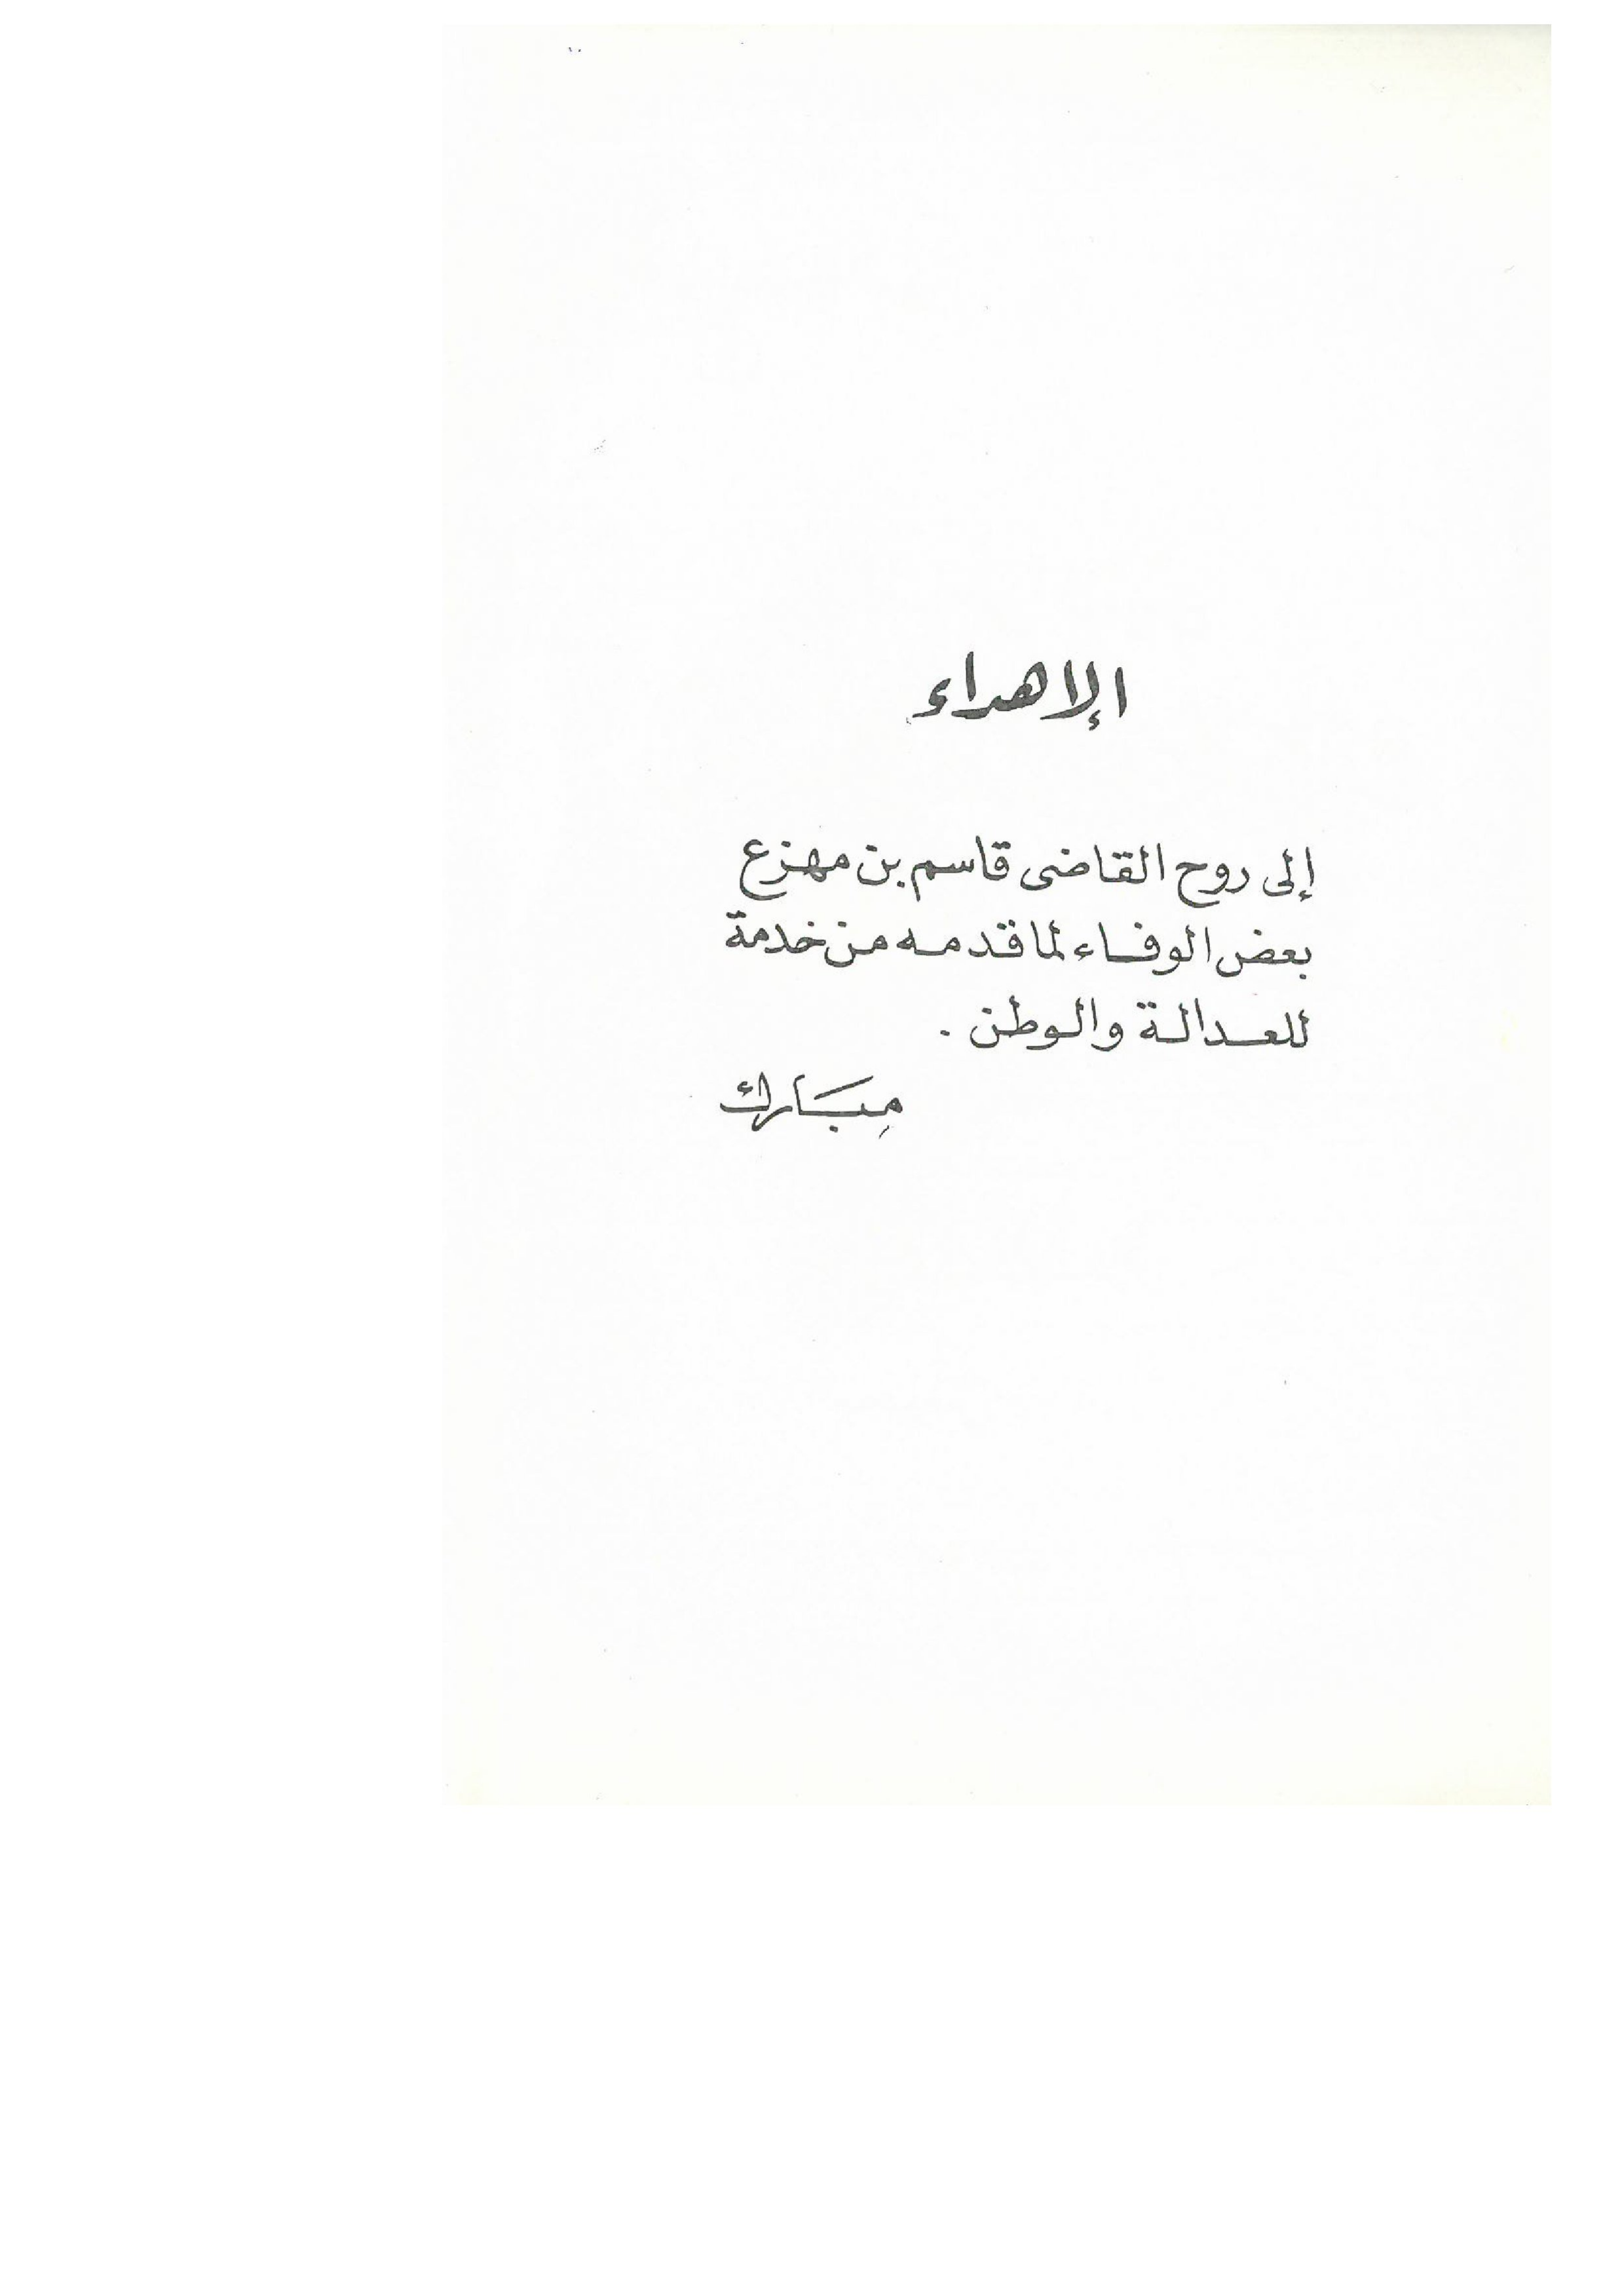 الإهداء
إلى روح القاضى قاسم بن مهزع
بعض الوفاء لما قدمه من خدمة
للعدالة والوطن .
مبارك